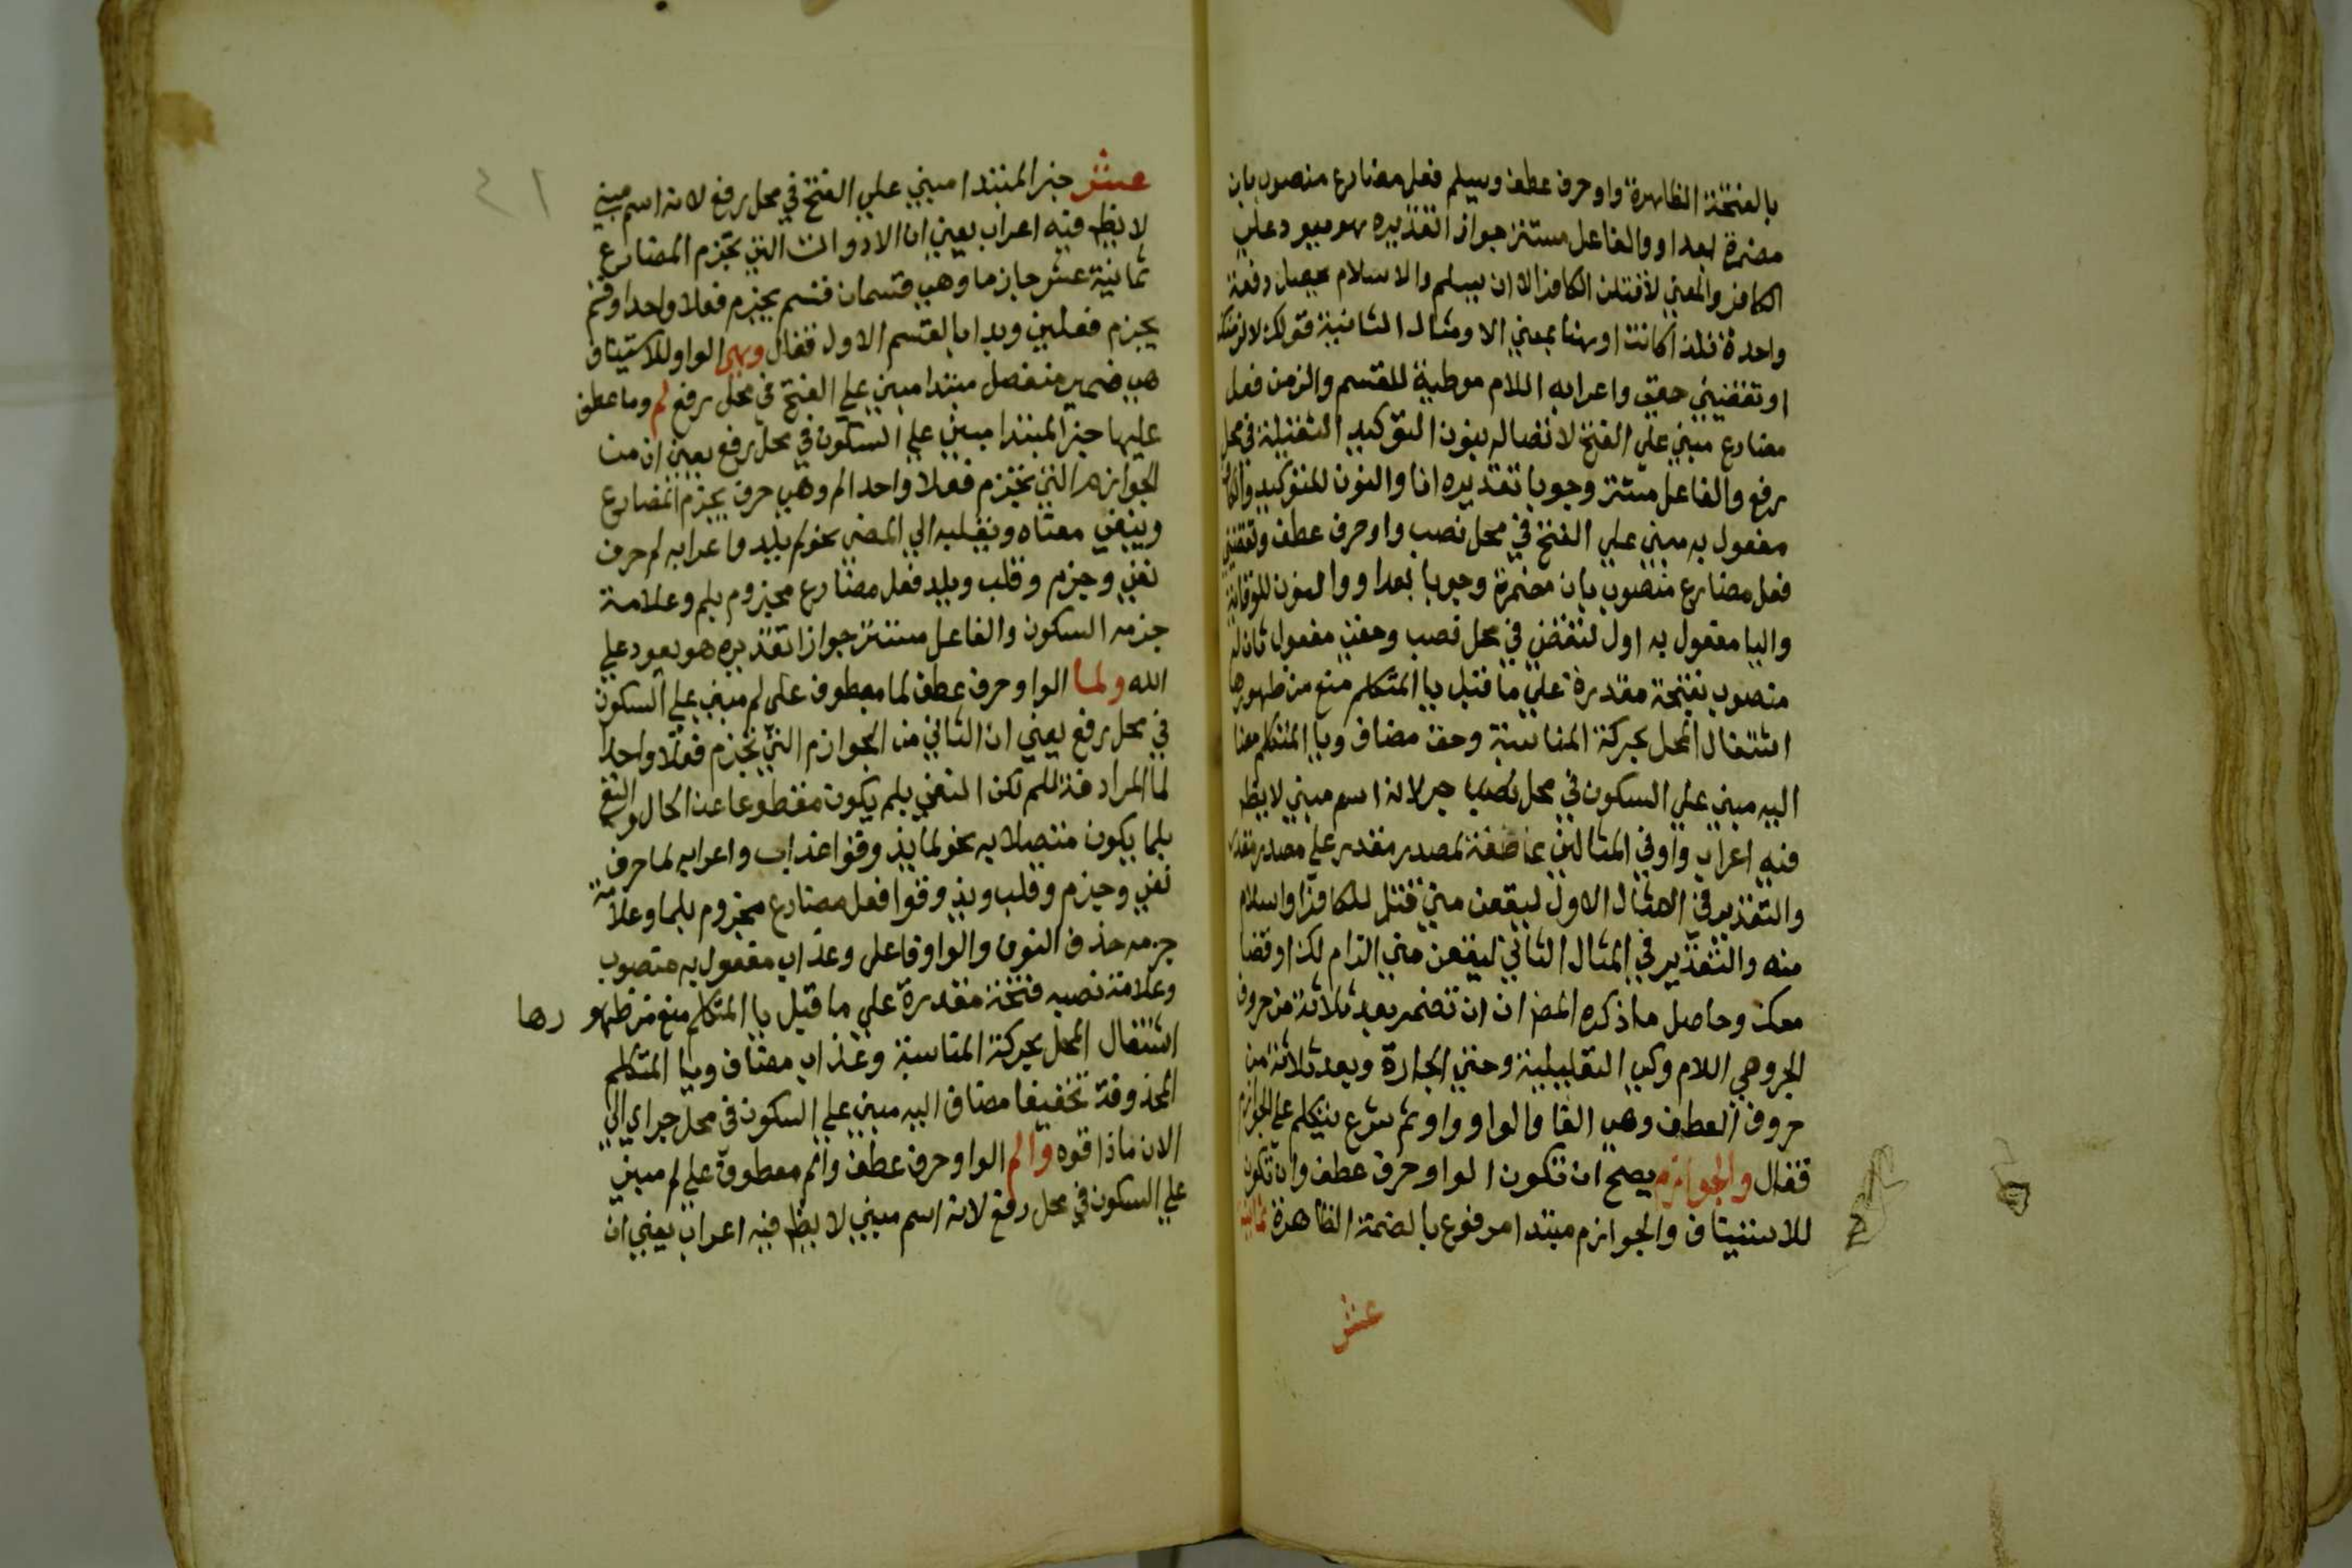 بالفتحة الظاهرة واو حرف عطف ويسلم فعل مضارع منصوب بان
مضمرة بعد او والفاعل مستتر جواز اتقديره هو يعود علي
الكافر والمعني لأقتلن الكافر الا ان يسلم والاسلام يحصل دفعة
واحدة فلذا كانت او هنا بمعني الا ومثال الثانية قولك لالزمنك
او تقضيني حقي واعرابه اللام موطية للقسم والزمن فعل
مضارع مبني علي الفتح لاتصاله بنون التوكيد الثقيلة في محل
رفع والفاعل مستتر وجوبا تقديره انا والنون للتوكيد والكاف
مفعول به مبني علي الفتح في محل نصب واو حرف عطف وتقضيني
فعل مضارع منصوب بان مضمرة وجوبا بعد او والنون للوقاية
واليا مفعول به اول لتقضي في محل نصب وحقي مفعول ثان له
منصوب بفتحة مقدرة علي ما قبل يا المتكلم منع من ظهورها
اشتغال المحل بحركة المناسبة وحق مضاف ويا المتكلم مضا
اليه مبني علي السكون في محل جر لانه اسم مبني لا يظهر
فيه اعراب واو في المثالين عاطفة لمصدر مقدر علي مصدر مقدر
والتقدير في المثال الاول ليقعن مني قتل للكافر او اسلام
منه والتقدير في المثال الثاني ليقعن مني الزام لك او قضا
معك وحاصل ما ذكره المص ان ان تضمر بعد ثلاثة من حروف
الجر وهي اللام وكي التعليلية وحتي الجارة وبعد ثلاثة من
حروف العطف وهي الفا والواو واو ثم شرع يتكلم علي الجوازم
فقال والجوازم يصح ان تكون الواو حرف عطف وان تكون
للاستيناف والجوازم مبتدا مرفوع بالضمة الظاهرة ثمانية
عشر
عشر خبر المبتدا مبني علي الفتح في محل رفع لانه اسم مبني
لا يظهر فيه اعراب يعني ان الادوات التي تجزم المضارع
ثمانية عشر جازما وهي قسمان قسم يجزم فعلا واحدا وقسم
يجزم فعلين وبدا بالقسم الاول فقال وهي الواو للاستيناف
هي ضمير منفصل مبتدا مبني علي الفتح في محل رفع لم وما عطف
عليها خبر المبتدا مبني علي السكون في محل رفع يعني ان من
الجوازم التي تجزم فعلا واحدا لم وهي حرف يجزم المضارع
وينفي معناه ويقلبه الي المضي نحو لم يلد واعرابه لم حرف
نفي وجزم وقلب ويلد فعل مضارع مجزوم بلم وعلامة
جزمه السكون والفاعل مستتر جوازا تقديره هو يعود علي
الله ولما الواو حرف عطف لما معطوف علي لم مبني علي السكون
في محل رفع يعني ان الثاني من الجوازم التي تجزم فعلا واحدا
لما المرادفة للم لكن النفي بلم يكون مقطوعا عن الحال والنفي
بلما يكون متصلا به نحو لما يذوقوا عذاب واعرابه لما حرف
نفي وجزم وقلب ويذوقوا فعل مضارع مجزوم بلما وعلامة
جزمه حذف النون والواو فاعل وعذاب مفعول به منصوب
وعلامة نصبه فتحة مقدرة علي ما قبل يا المتكلم منع من ظهورها
اشتغال المحل بحركة المناسبة وعذاب مضاف ويا المتكلم
المحذوفة تخفيفا مضاف اليه مبني علي السكون في محل جر اي الي
الان ماذاقوه والم الواو حرف عطف والم معطوف علي لم مبني
علي السكون في محل رفع لانه اسم مبني لا يظهر فيه اعراب يعني ان